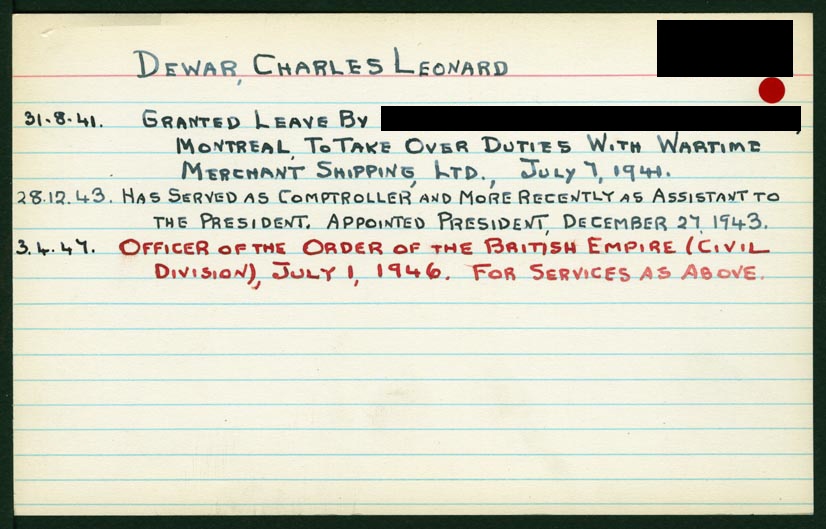 DEWAR, CHARLES LEONARD
31.8.41. GRANTED LEAVE BY
MONTREAL, TO TAKE OVER DUTIES WITH WARTIME
MERCHANT SHIPPING, LTD., JULY 7, 1941.
28.12.43. HAS SERVED AS COMPTROLLER AND MORE RECENTLY AS ASSISTANT TO
THE PRESIDENT. APPOINTED PRESIDENT, DECEMBER 27, 1943.
3.4.47. OFFICER OF THE ORDER OF THE BRITISH EMPIRE (CIVIL
DIVISION), JULY 1, 1946. FOR SERVICES AS ABOVE.